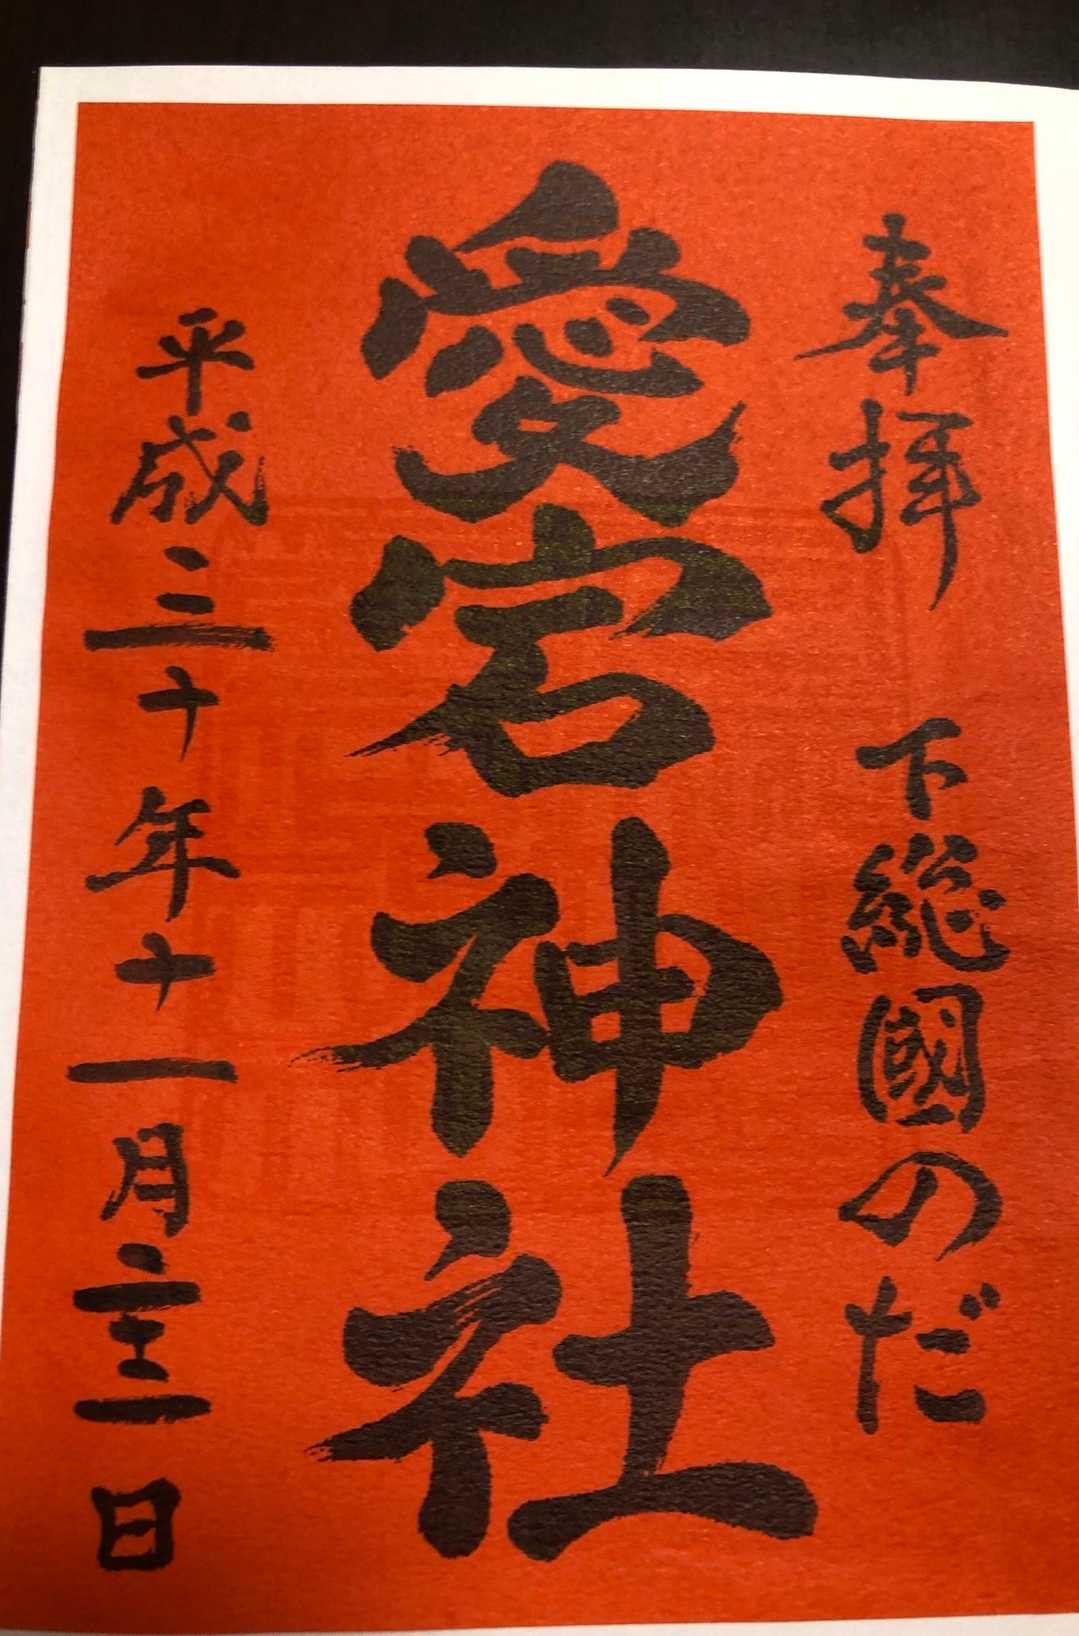 奉拝　下総國のだ
愛宕神社
平成三十年十一月二十二日